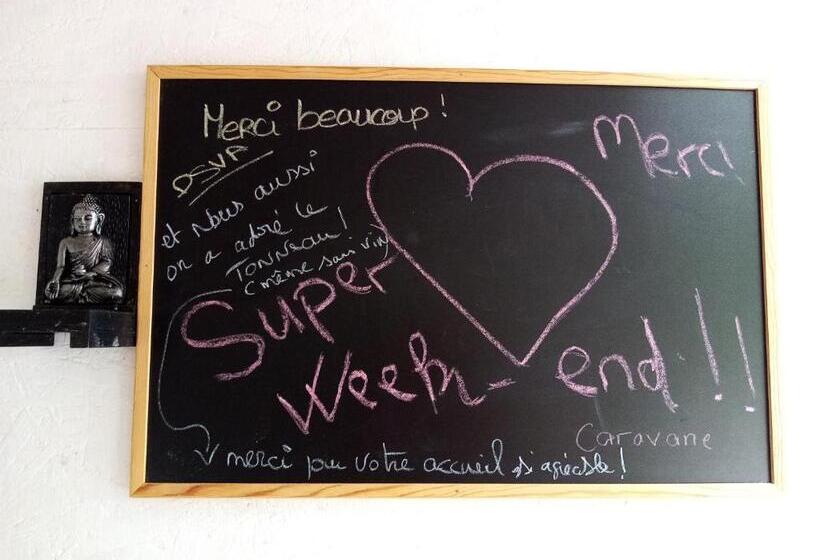 Merci beaucoup !
DSVP
Merci
et Nous aussi
on a adoré le
TONNEAU !
(même sans vin)
Super
Week-end !!
Caravane
merci pour votre accueil si agréable !